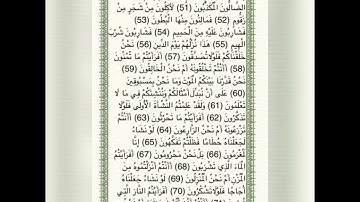 الضَّالُّونَ الْمُكَذِّبُونَ (51) لَآكِلُونَ مِنْ شَجَرٍ مِنْ
زَقُّومٍ (52) فَمَالِئُونَ مِنْهَا الْبُطُونَ (53)
فَشَارِبُونَ عَلَيْهِ مِنَ الْحَمِيمِ (54) فَشَارِبُونَ شُرْبَ
الْهِيمِ (55) هَذَا نُزُلُهُمْ يَوْمَ الدِّينِ (56) نَحْنُ
خَلَقْنَاكُمْ فَلَوْلَا تُصَدِّقُونَ (57) أَفَرَأَيْتُمْ مَا تُمْنُونَ
(58) أَأَنْتُمْ تَخْلُقُونَهُ أَمْ نَحْنُ الْخَالِقُونَ (59)
نَحْنُ قَدَّرْنَا بَيْنَكُمُ الْمَوْتَ وَمَا نَحْنُ بِمَسْبُوقِينَ
(60) عَلَى أَنْ نُبَدِّلَ أَمْثَالَكُمْ وَنُنْشِئَكُمْ فِي مَا لَا
تَعْلَمُونَ (61) وَلَقَدْ عَلِمْتُمُ النَّشْأَةَ الْأُولَى فَلَوْلَا
تَذَكَّرُونَ (62) أَفَرَأَيْتُمْ مَا تَحْرُثُونَ (63) أَأَنْتُمْ
تَزْرَعُونَهُ أَمْ نَحْنُ الزَّارِعُونَ (64) لَوْ نَشَاءُ
لَجَعَلْنَاهُ حُطَامًا فَظَلْتُمْ تَفَكَّهُونَ (65) إِنَّا
لَمُغْرَمُونَ (66) بَلْ نَحْنُ مَحْرُومُونَ (67) أَفَرَأَيْتُمُ
الْمَاءَ الَّذِي تَشْرَبُونَ (68) أَأَنْتُمْ أَنْزَلْتُمُوهُ مِنَ
الْمُزْنِ أَمْ نَحْنُ الْمُنْزِلُونَ (69) لَوْ نَشَاءُ جَعَلْنَاهُ
أُجَاجًا فَلَوْلَا تَشْكُرُونَ (70) أَفَرَأَيْتُمُ النَّارَ الَّتِي